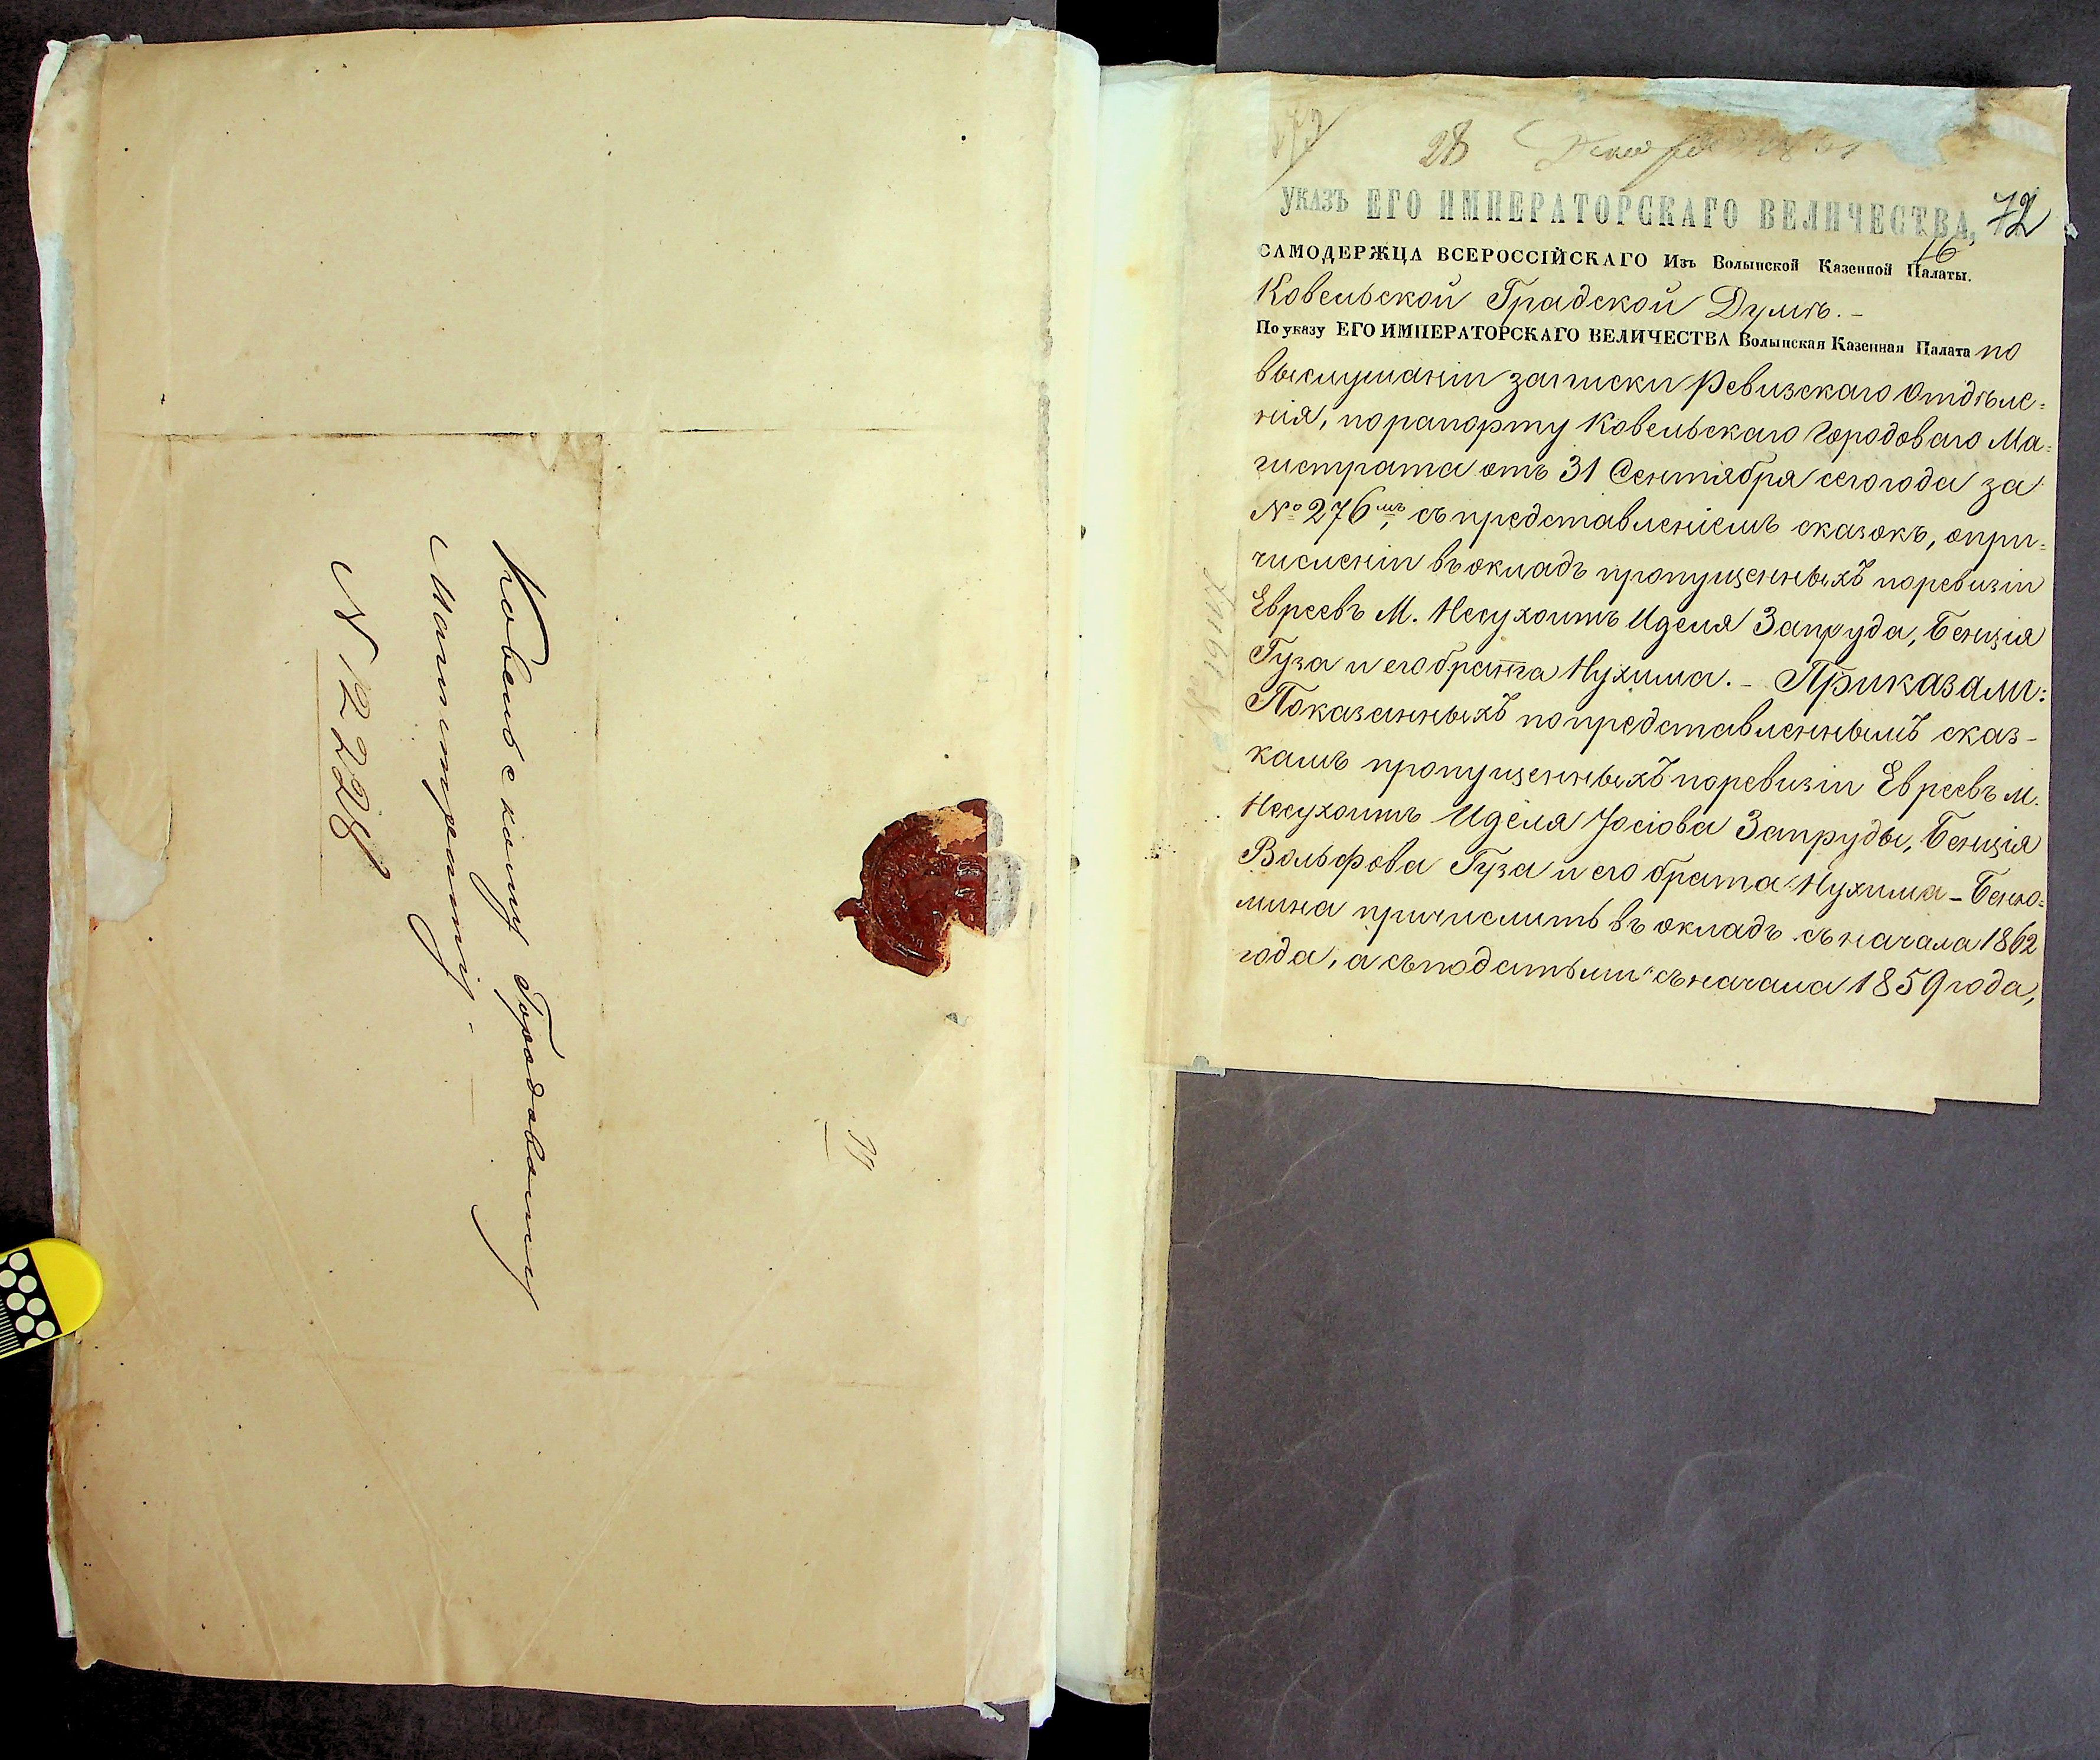 Ковельскому Городовому
Магистрату.
N 12228
28 Декабря 1861
72
УКАЗЪ ЕГО ИМПЕРАТОРСКАГО ВЕЛИЧЕСТВА,
16
САМОДЕРЖЦА ВСЕРОССІЙСКАГО Изъ Волынской Казенной Палаты.
Ковельской Градской Думѣ. –
По указу ЕГО ИМПЕРАТОРСКАГО ВЕЛИЧЕСТВА Волынская Казенная Палата по
выслушаніи записки Ревизскаго Отдѣле=
нія, по рапорту Ковельскаго Городоваго Ма=
гистрата отъ 31 Сентября сего года за
№ 276мъ, съ представленіемъ сказокъ, о при=
численіи въ окладъ пропущенныхъ по ревизіи
Евреевъ М. Несухоижъ Иделя Запруда, Бенція
Гуза и его брата Нухима. – Приказали:
Показанныхъ по представленнымъ сказ-
камъ пропущенныхъ по ревизіи Евреевъ М.
Несухоижъ Иделя Іосіова Запруды, Бенція
Вольфова Гуза и его брата Нухима-Беню=
мина причислить въ окладъ съ начала 1862
года, а съ податьми съ начала 1859 года,